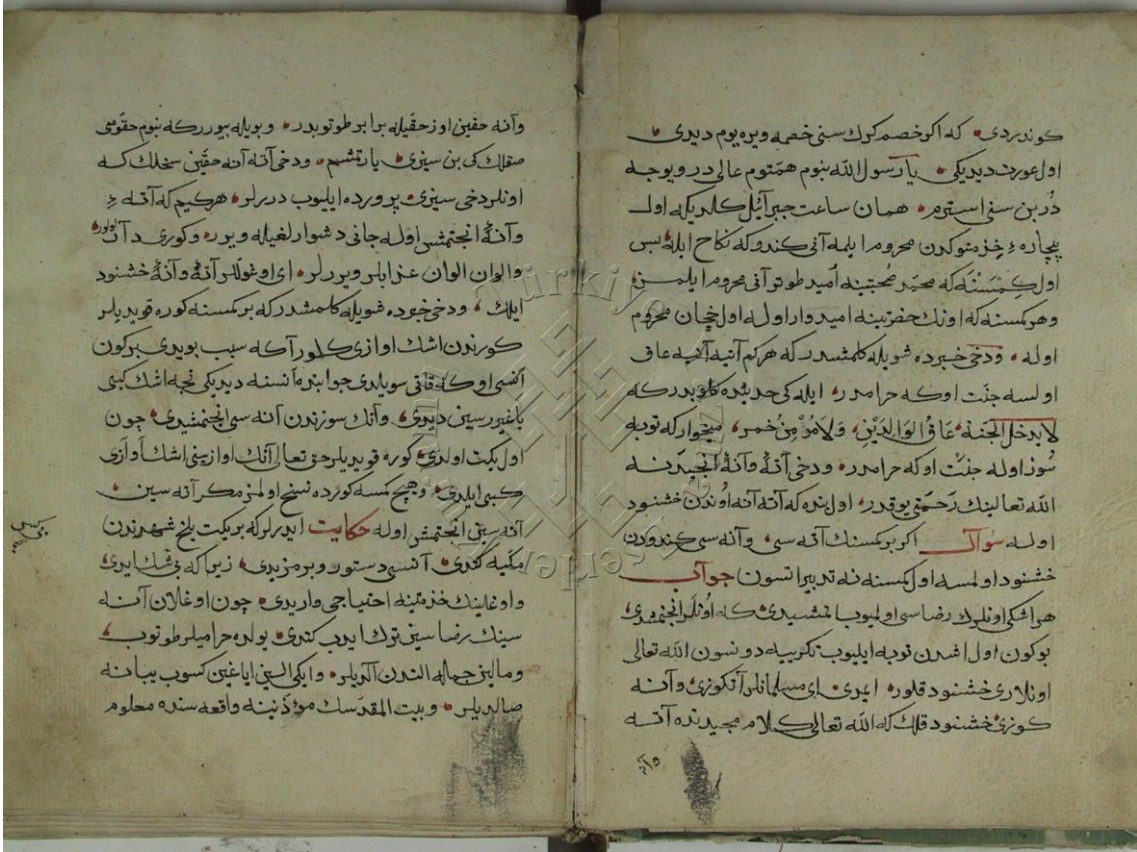 كوندردى كه اكر خصم كرك سنى خصمه ويره يوم ديدى
اول عورت ديديكى يا رسول الله بنوم همتوم عالى در و يوجه
در بن سنى استرم همان ساعت جبرآئل كلديكه اول
بيچاره ء خذمتوكدن محروم ايلمه آنى كندوكه نكاح ايله پس
اول كمسنه كه محمد صحبتينه اميد طوتر آنى محروم ايلمز
وهر كمسنه كه اونك حضرتينه اميدوار اوله اول قچان محروم
اوله ودخى خبرده شويله كلمشدر كه هركم آتيه آنيه عاق
اولسه جنت اوكه حرامدر ايله كى حديثده كلوبدركه
لا يدخل الجنة عاق الوالدين ولا مدمن خمر ميخوار كه توبه
سوز اوله جنت اوكه حرامدر ودخى آتهٔ وآنهٔ انجيدنه
الله تعالى نك رحمتى يوقدر اول بنده كه آته آنه اوندن خشنود
اوله سوآل اكر بر كمسنك آته سى وآنه سى كندودن
خشنود اولمسه اول كمسنه نه تدبير اتسون جوآب
هر اشكى اونلرك رضاسى اولميوب ايتمشيدى كه اونلر انجنمشيدى
بوكون اول اشدن توبه ايليوب تكرييه دونسون الله تعالى
اونلارى خشنود قلور ايمدى اى مسلمانلر آتكوزى وآنه
كوزى خشنود قلك كه الله تعالى كلام مجيدنده آته
وآنه
وآنه حقين اوز حقيله برابر طوتوبدر وبويله بيوررك بنوم حقومى
صقلك كى بن سيزى يارتمشم ودخى آته آنه حقين سخلك كه
اونلر دخى سيزى پرورده ايليوب دررلر هركيم كه آته ء
وآنهٔ انجتمش اوله جانى دشوارلغيله ويرر وكورى دار اولور
والوان الوان عذابلر ويررلر اى اوغوللر آتهٔ وآنهٔ خشنود
ايلك ودخى خبرده شويله كلمشدر كه بر كمسنه كوره قويديلر
كورندن اشك اوازى كلور آكه سبب بويدى بركون
آنسى اوكه قاتى سويلدى جوابنده آنسنه ديديكى نجه اشك كبى
باغيررسين ديدى وآنك سوزندن آنه سى انجنمشيدى چون
اول يكت اولدى كوره قويديلر حق تعالى آنك اوازينى اشك آوازى
كبى ايلدى وهيچ كمسه كورده نسخ اولمز مكر آنه سين
آنه سينى انجتمش اوله حكايت ايدرلركه بر يكت بلخ شهرندن
مكيه كتدى آنسى دستور ويرمزيدى زيرا كه بى شك ايدى
و اوغلينك خذمتينه احتياجى واريدى چون اوغلان آنه
سينك رضاسين ترك ايدب كتدى يولده حراميلر طوتوب
ومالين جماله الندن آلديلر وايكى الين اياغين كسوب يبانه
صالديلر وبيت المقدسك مؤذنينه واقعه سنده معلوم